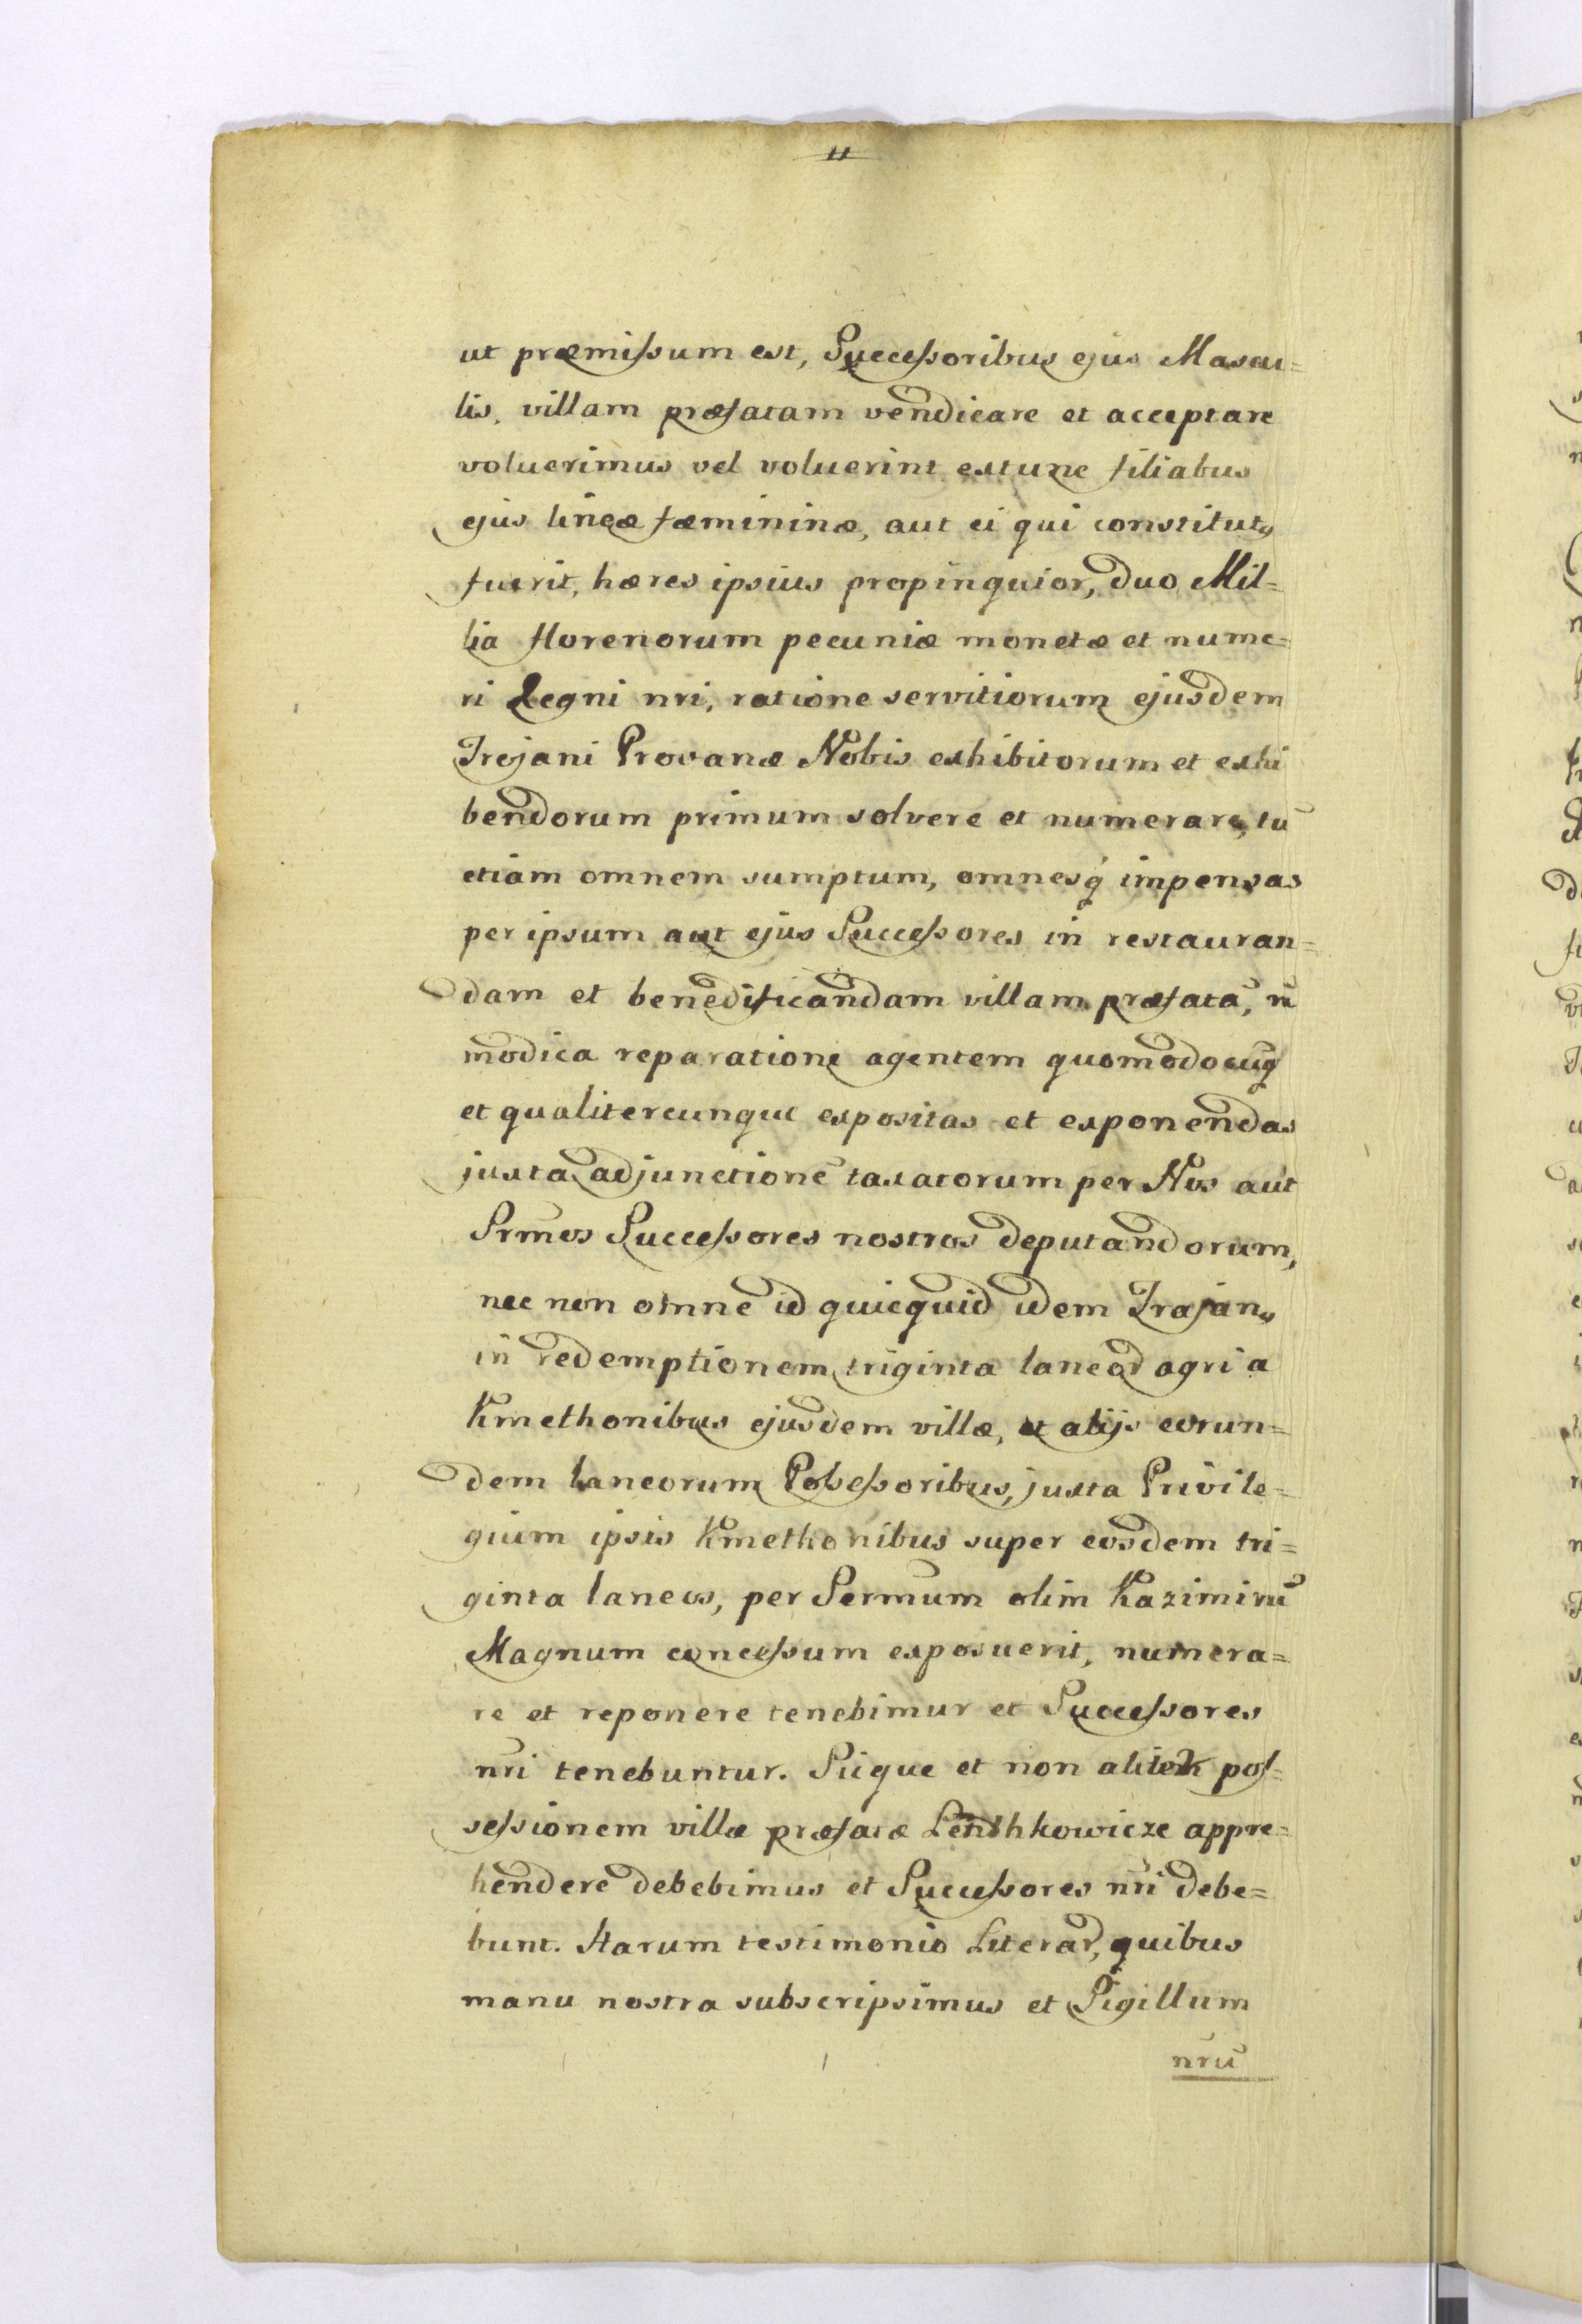 11
ut præmissum est, Successoribus ejus Mascu=
lis, villam præfatam vendicare et acceptare
voluerimus vel voluerint extunc filiabus
ejus lineæ fæmininæ, aut ei qui constitutꝰ
fuerit, hæres ipsius propinquior, duo Mil=
lia florenorum pecuniæ monetæ et nume=
ri Regni nri, ratione servitiorum ejusdem
Trojani Provanæ Nobis exhibitorum et exhi
bendorum primum solvere et numerare, tū
etiam omnem sumptum, omnesq́ impensas
per ipsum aut ejus Successores in restauran=
dam et benedificandam villam præfatā, n̄
modica reparatione agentem quomodocuq́
et qualitercunque expositas et exponendas
juxta adjunctionē taxatorum per Nos aut
Srm̄os Successores nostros deputandorum,
nec non omne id quicquid idem Trajanꝰ
in redemptionem triginta laneoꝝ agri a
Kmethonibus ejusdem villæ, et alijs eorun=
dem laneorum Possessoribus, juxta Privile=
gium ipsis Kmethonibus super eosdem tri=
ginta laneos, per Sermum olim Kazimirū
Magnum concessum exposuerit, numera=
re et reponere tenebimur et Successores
nri tenebuntur. Sicque et non aliter pos=
sessionem villæ præfatæ Lendhkowicze appre=
hendere debebimus et Successores nri debe=
bunt. Harum testimonio Literaꝝ, quibus
manu nostra subscripsimus et Sigillum
nrū